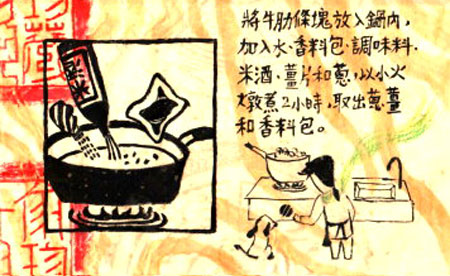 將牛肋條塊放入鍋內,
加入水、香料包、調味料、
米酒、薑片和蔥,以小火
燉煮2小時,取出蔥薑
和香料包。